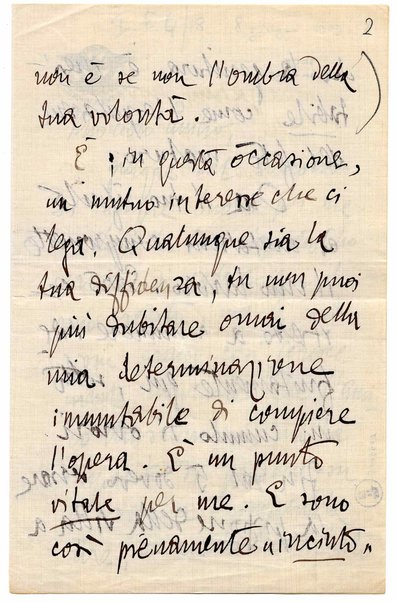 2
non è se non l'ombra della
tua volontà.
È, in questa occasione,
un mutuo interesse che ci
lega. Qualunque sia la
tua diffidenza, tu non puoi
più dubitare omai della
mia determinazione
immutabile di compiere
l'opera. È un punto
vitale per me. E sono
così pienamente